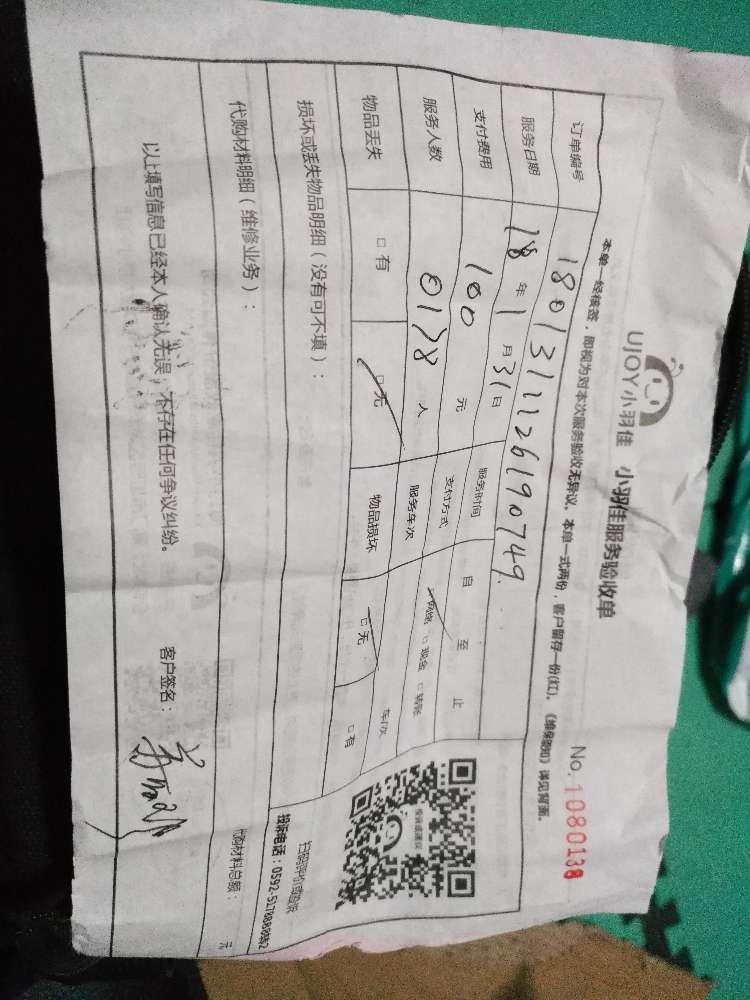 UJOY小羽佳 小羽佳服务验收单
No. 1080138
本单一经核签,即视为对本次服务验收无异议。本单一式两份,客户留存一份(红)。《维保须知》详见背面。
订单编号 1801311126190749
服务日期 18年1月31日 服务时间 自 至 止
支付费用 100 元 支付方式 □网络 □现金 □转账
服务人数 0178 人 服务车次 车/次
物品丢失 □有 □无 物品损坏 □无 □有
损坏或丢失物品明细(没有可不填):
投诉电话:0592-5178888转2
代购材料明细(维修业务): 代购材料总额: 元
以上填写信息已经本人确认无误,不存在任何争议纠纷。 客户签名: